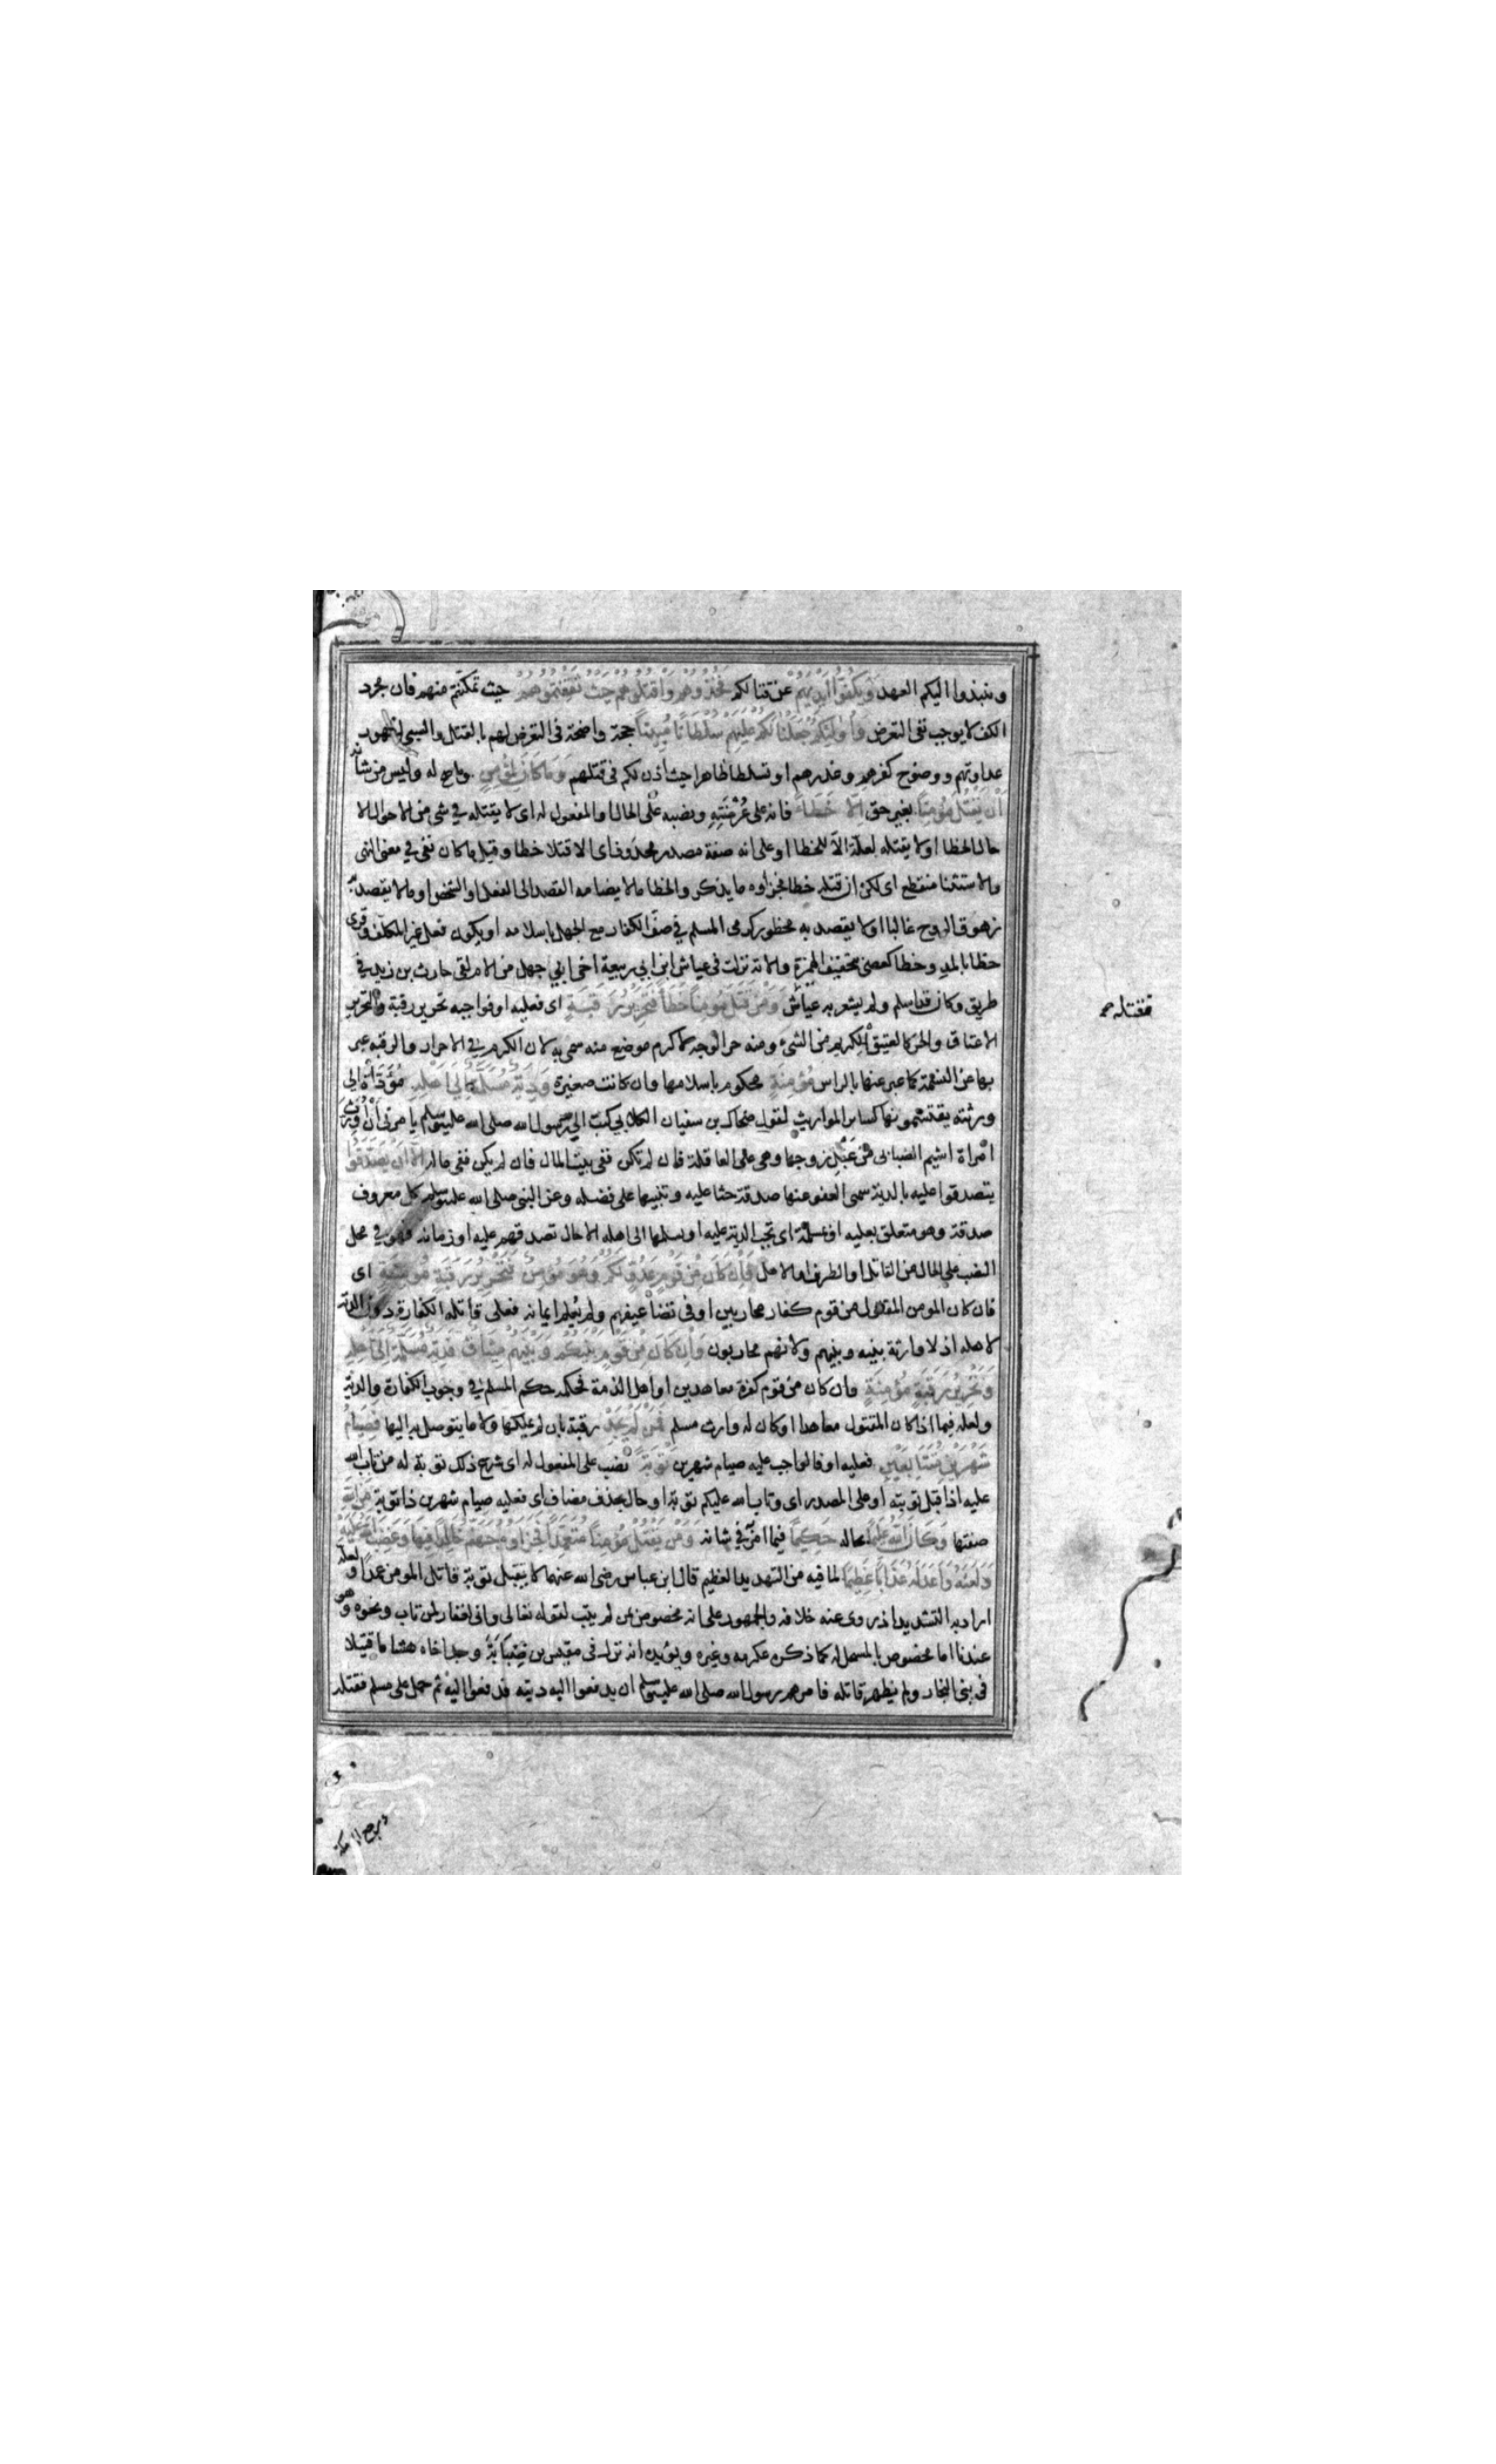 وينبذوا اليكم العهد وَيَكُفُّوا اَيْدِيَهُمْ عن قتالكم فَخُذُوهُمْ وَاقْتُلُوهُمْ حَيْثُ ثَقِفْتُمُوهُمْ حيث تمكنتم منهم فان مجرد
الكف لا يوجب نفى التعرض وَاُولٰئِكُمْ جَعَلْنَا لَكُمْ عَلَيْهِمْ سُلْطَانًا مُبِينًا حجة واضحة فى التعرض لهم بالقتل والسبى لظهور
عداوتهم ووضوح كفرهم وغدرهم او تسلطا ظاهرا حيث اذن لكم فى قتلهم وَمَا كَانَ لِمُؤْمِنٍ وما صح له وليس من شانه
اَنْ يَقْتُلَ مُؤْمِنًا بغير حق اِلَّا خَطَاً فانه على عُرْضَتِهِ ونصبه على الحال او المفعول له اى لا يقتله فى شى من الاحوال الا
حال الخطا او لا يقتله لعلة الا للخطا او على انه صفة مصدر محذوف اى الا قتلا خطا وقيل ما كان نفى فى معنى النهى
والاستثنا منقطع اى لكن ان قتله خطا فجزاوه ما يذكر والخطا ما لا يضامه القصد الى الفعل او الشخص او ما لا يقصد به
زهوق الروح غالبا او لا يقصد به محظور كرمى المسلم فى صف الكفار مع الجهل باسلامه او يكون فعل غير المكلف وقرى
خطا بالمد وخطا كعصى بتخفيف الهمزة والاية نزلت فى عياش ابن ابى ربيعة اخى ابى جهل من الام لقى حارث بن زيد فى
طريق وكان قد اسلم ولم يشعر به عياش وَمَنْ قَتَلَ مُؤْمِنًا خَطَاً فَتَحْرِيرُ رَقَبَةٍ اى فعليه او فواجبه تحرير رقبة والتحرير
فقتله صح
الاعتاق والحر كالعتيق الكريم من الشىء ومنه حر الوجه لاكرم موضع منه سمى به لان الكرم فى الاحرار والرقبة عبر
بها عن النسمة كما عبر عنها بالراس مُؤْمِنَةٍ محكوم باسلامها وان كانت صغيرة وَدِيَةٌ مُسَلَّمَةٌ اِلَى اَهْلِهِ مُؤَدَّاة الى
ورثته يقتسمونها كساير المواريث لقول ضحاك بن سفيان الكلابى كتب الى رسول الله صلى الله عليه وسلم يامرنى ان اورث
امراة اشيم الضبابى من عقل زوجها وهى على العاقلة فان لم تكن ففى بيت المال فان لم يكن ففى ماله اِلَّا اَنْ يَصَّدَّقُوا
يتصدقوا عليه بالدية سمى العفو عنها صدقة حثا عليه وتنبيها على فضله وعن النبى صلى الله عليه وسلم كل معروف
صدقة وهو متعلق بعليه او بمسلمة اى تجب الدية عليه او يسلمها الى اهله الا حال تصدقهم عليه او زمانه فهو فى محل
النصب على الحال من القاتل او الظرف او الاهل فَاِنْ كَانَ مِنْ قَوْمٍ عَدُوٍّ لَكُمْ وَهُوَ مُؤْمِنٌ فَتَحْرِيرُ رَقَبَةٍ مُؤْمِنَةٍ اى
فان كان المومن المقتول من قوم كفار محاربين او فى تضاعيفهم ولم يُعلم ايمانه فعلى قاتله الكفارة دون الدية
لاهله اذ لا وارثة بينه وبينهم ولانهم محاربون وَاِنْ كَانَ مِنْ قَوْمٍ بَيْنَكُمْ وَبَيْنَهُمْ مِيثَاقٌ فَدِيَةٌ مُسَلَّمَةٌ اِلَى اَهْلِهِ
وَتَحْرِيرُ رَقَبَةٍ مُؤْمِنَةٍ وان كان من قوم كفرة معاهدين او اهل الذمة فحكمه حكم المسلم فى وجوب الكفارة والدية
ولعله فيما اذا كان المقتول معاهدا او كان له وارث مسلم فَمَنْ لَمْ يَجِدْ رقبة بان لم يملكها ولا ما يتوصل به اليها فَصِيَامُ
شَهْرَيْنِ مُتَتَابِعَيْنِ فعليه او فالواجب عليه صيام شهرين تَوْبَةً نصب على المفعول له اى شرع ذلك توبة له من تاب الله
عليه اذا قبل توبته او على المصدر اى وتاب الله عليكم توبة او حال بحذف مضاف اى فعليه صيام شهرين ذا توبة مِنَ اللهِ
صفتها وَكَانَ اللهُ عَلِيمًا بحاله حَكِيمًا فيما امر فى شانه وَمَنْ يَقْتُلْ مُؤْمِنًا مُتَعَمِّدًا فَجَزَاوُهُ جَهَنَّمُ خَالِدًا فِيهَا وَغَضِبَ اللهُ عَلَيْهِ
وَلَعَنَهُ وَاَعَدَّ لَهُ عَذَابًا عَظِيمًا لما فيه من التهديد العظيم قال ابن عباس رضى الله عنهما لا يتقبل توبة قاتل المومن عمدا ولعله
اراد به التشديد اذ روى عنه خلافه والجمهور على انه مخصوص بمن لم يتب لقوله تعالى وانى لغفار لمن تاب ونحوه وهو
عندنا اما مخصوص بالمستحل له كما ذكره عكرمه وغيره ويؤيده انه نزل فى مقيس بن ضبابة وجد اخاه هشاما قتيلا
فى بنى النجار ولم يظهر قاتله فامرهم رسول الله صلى الله عليه وسلم ان يدفعوا اليه ديته فدفعوا اليه ثم حمل على مسلم فقتله